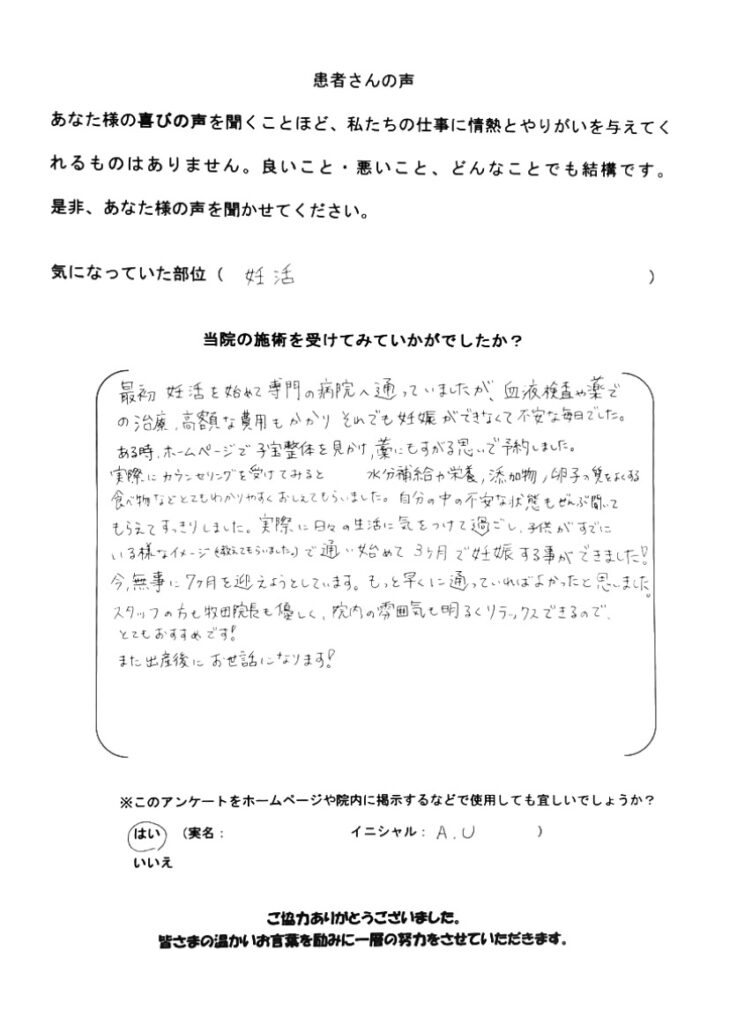 患者さんの声
あなた様の喜びの声を聞くことほど、私たちの仕事に情熱とやりがいを与えてく
れるものはありません。良いこと・悪いこと、どんなことでも結構です。
是非、あなた様の声を聞かせてください。
気になっていた部位（ 妊活 ）
当院の施術を受けてみていかがでしたか？
最初 妊活を始めて専門の病院へ通っていましたが、血液検査や薬で
の治療、高額な費用もかかり それでも妊娠ができなくて不安な毎日でした。
ある時、ホームページで子宝整体を見かけ、藁にもすがる思いで予約しました。
実際にカウンセリングを受けてみると 水分補給や栄養、添加物、卵子の質をよくする
食べ物などとてもわかりやすくおしえてもらいました。自分の中の不安な状態もぜんぶ聞いて
もらえてすっきりしました。実際に日々の生活に気をつけて過ごし、子供がすでに
いる様なイメージ(教えてもらいました。)で通い始めて3ヶ月で妊娠する事ができました!
今、無事に7ヶ月を迎えようとしています。もっと早くに通っていればよかったと思しました。
スタッフの方も牧田院長も優しく、院内の雰囲気も明るくリラックスできるので、
とてもおすすめです!
また出産後にお世話になります!
※このアンケートをホームページや院内に掲示するなどで使用しても宜しいでしょうか？
はい （実名： イニシャル： A.U ）
いいえ
ご協力ありがとうございました。
皆さまの温かいお言葉を励みに一層の努力をさせていただきます。